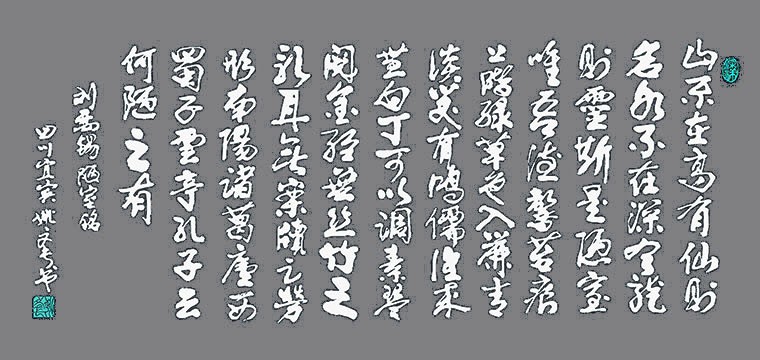 山不在高有仙則
名水不在深有龍
則靈斯是陋室
唯吾德馨苔痕
上階綠草色入簾青
談笑有鴻儒往來
無白丁可以调素琴
閱金經無丝竹之
亂耳無案牘之勞
形南陽諸葛廬西
蜀子雲亭孔子云
何陋之有
刘禹錫陋室銘
四川宜賓姚书